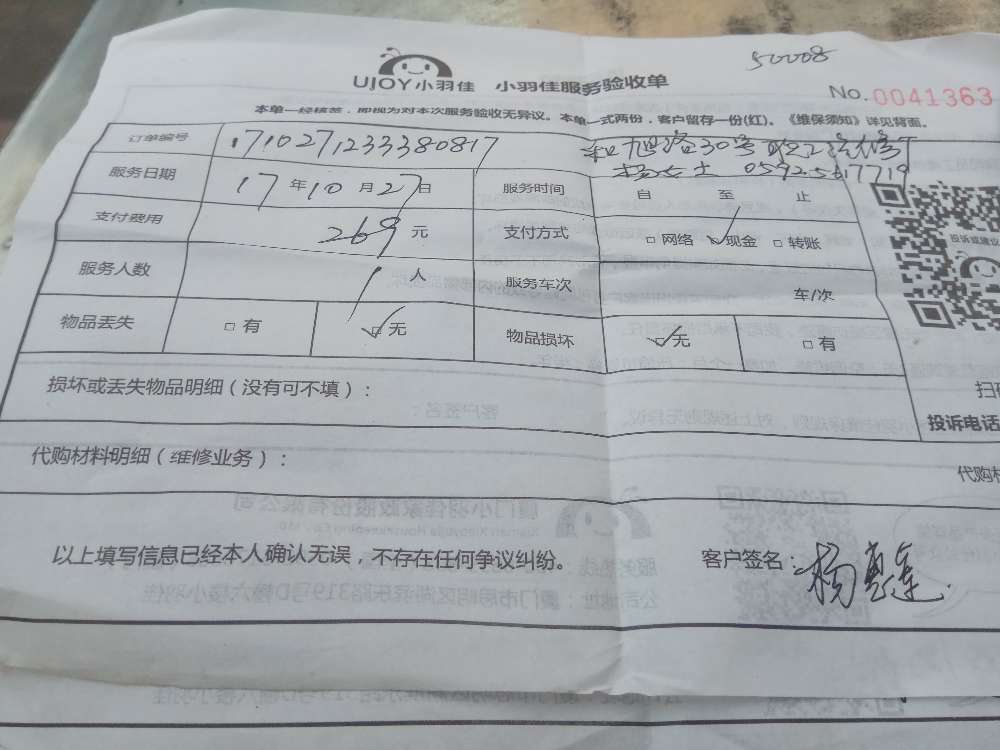 50008
UJOY小羽佳 小羽佳服务验收单
No. 0041363
本单一经核签，即视为对本次服务验收无异议。本单一式两份，客户留存一份(红)。《维保须知》详见背面。
订单编号 1710271233380817 和旭路30号
杨女士 0592-5617719
服务日期 17年10月27日 服务时间 自 至 止
支付费用 269元 支付方式 □网络 ☑现金 □转账
投诉或建议
服务人数 1人 服务车次 车/次
物品丢失 □有 ☑无 物品损坏 ☑无 □有
损坏或丢失物品明细（没有可不填）：
扫
投诉电话
代购材料明细（维修业务）：
代购
以上填写信息已经本人确认无误，不存在任何争议纠纷。 客户签名：杨惠莲